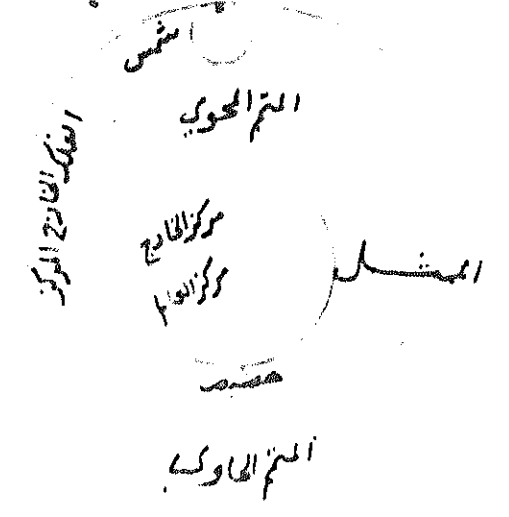 شمس
المتمم المحوي
الفلك الخارج المركز
مركز الخارج
مركز العالم
الممثل
حضيض
المتمم الحاوي